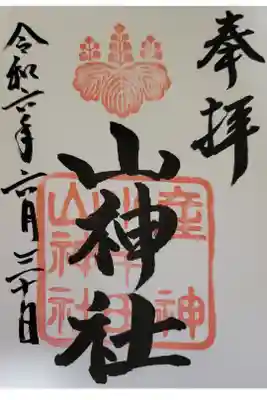 奉拝
山神社
令和六年六月三十日
産神
山神社